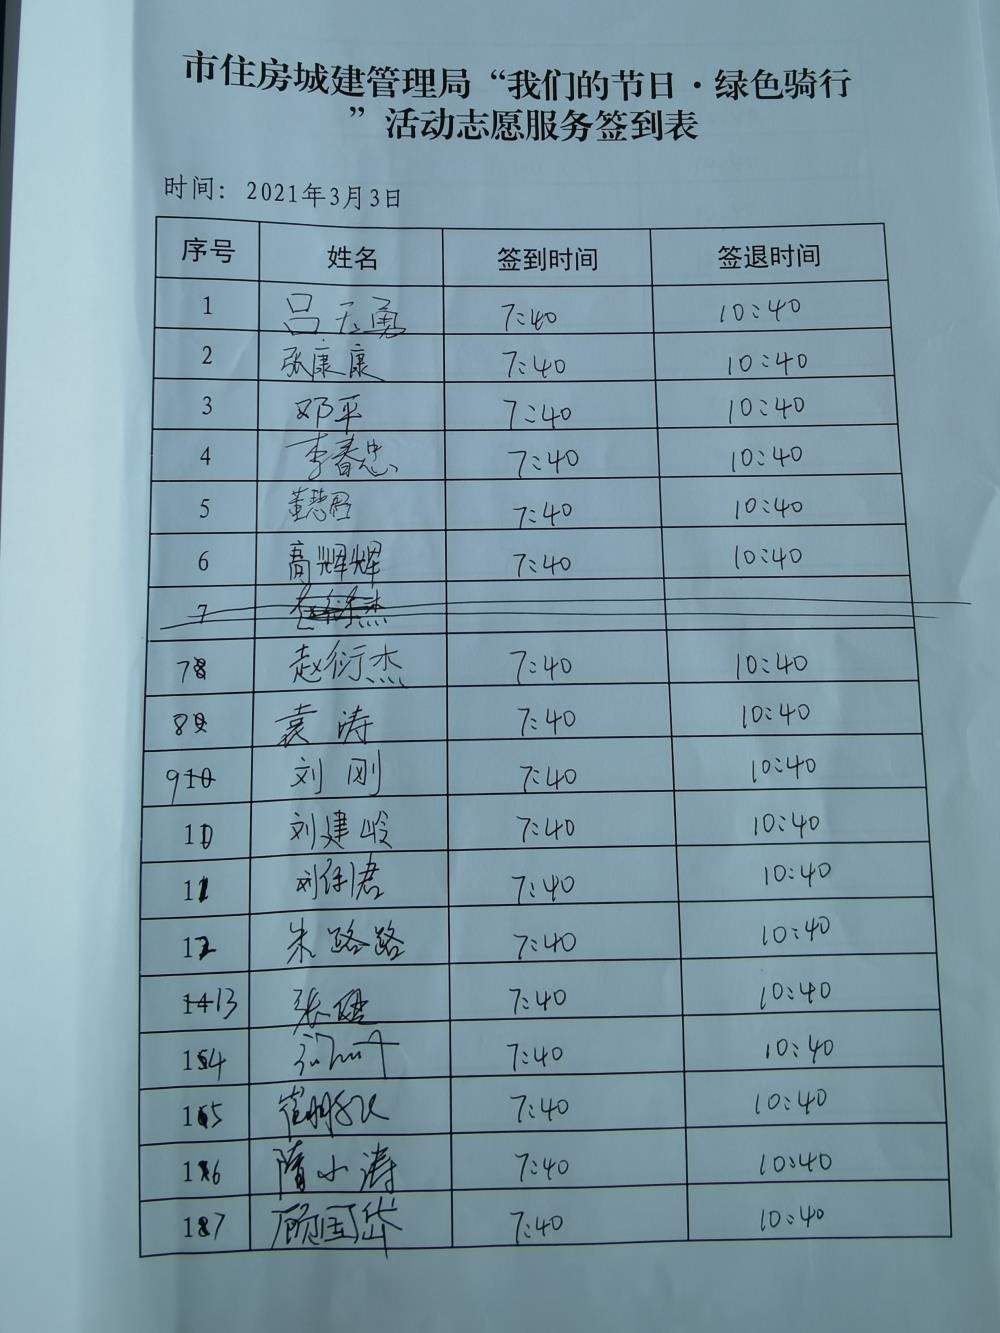 市住房城建管理局“我们的节日·绿色骑行
”活动志愿服务签到表
时间：2021年3月3日
序号 姓名 签到时间 签退时间
1 吕天勇 7:40 10:40
2 张康康 7:40 10:40
3 邓平 7:40 10:40
4 李春忠 7:40 10:40
5 董慧君 7:40 10:40
6 高辉辉 7:40 10:40
7 赵衍杰
7 赵衍杰 7:40 10:40
8 袁涛 7:40 10:40
9 刘刚 7:40 10:40
10 刘建峻 7:40 10:40
11 刘保君 7:40 10:40
12 朱路路 7:40 10:40
13 张 7:40 10:40
14 7:40 10:40
15 崔 7:40 10:40
16 隋小涛 7:40 10:40
17 顾国岱 7:40 10:40